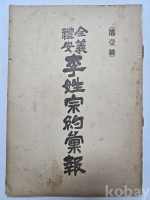 (第壹號)
全義
禮安
李姓宗約彙報
kobay